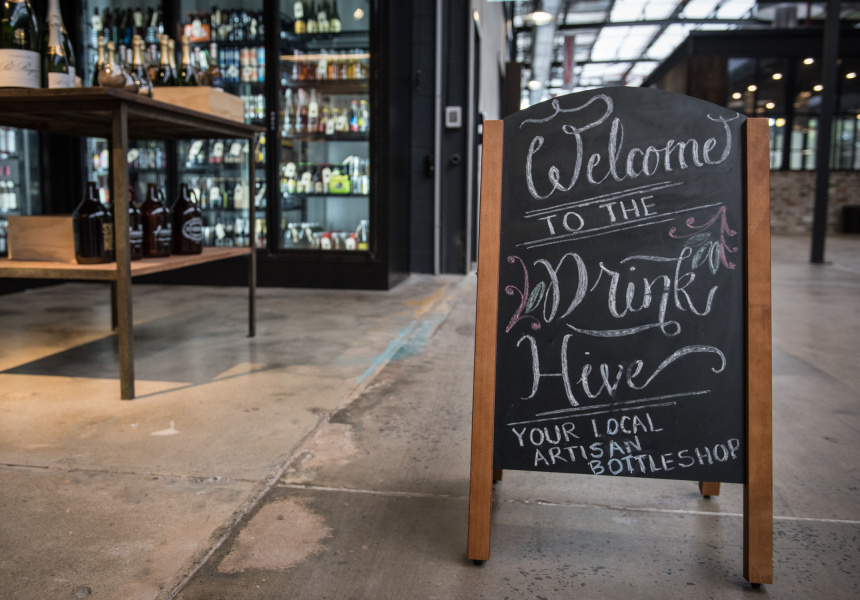 Welcome
TO THE
Drink
Hive
YOUR LOCAL
ARTISAN
BOTTLESHOP